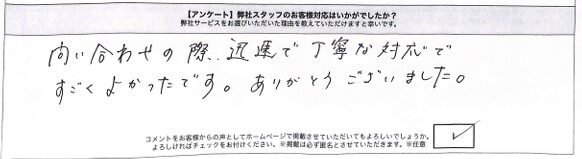 【アンケート】弊社スタッフのお客様対応はいかがでしたか？
弊社サービスをお選びいただいた理由を教えていただけますと幸いです。
問い合わせの際、迅速で丁寧な対応で
すごくよかったです。ありがとうございました。
コメントをお客様からの声としてホームページで掲載させていただいてもよろしいでしょうか。
よろしければチェックをお付けください。※掲載は必ず匿名とさせていただきます。※任意